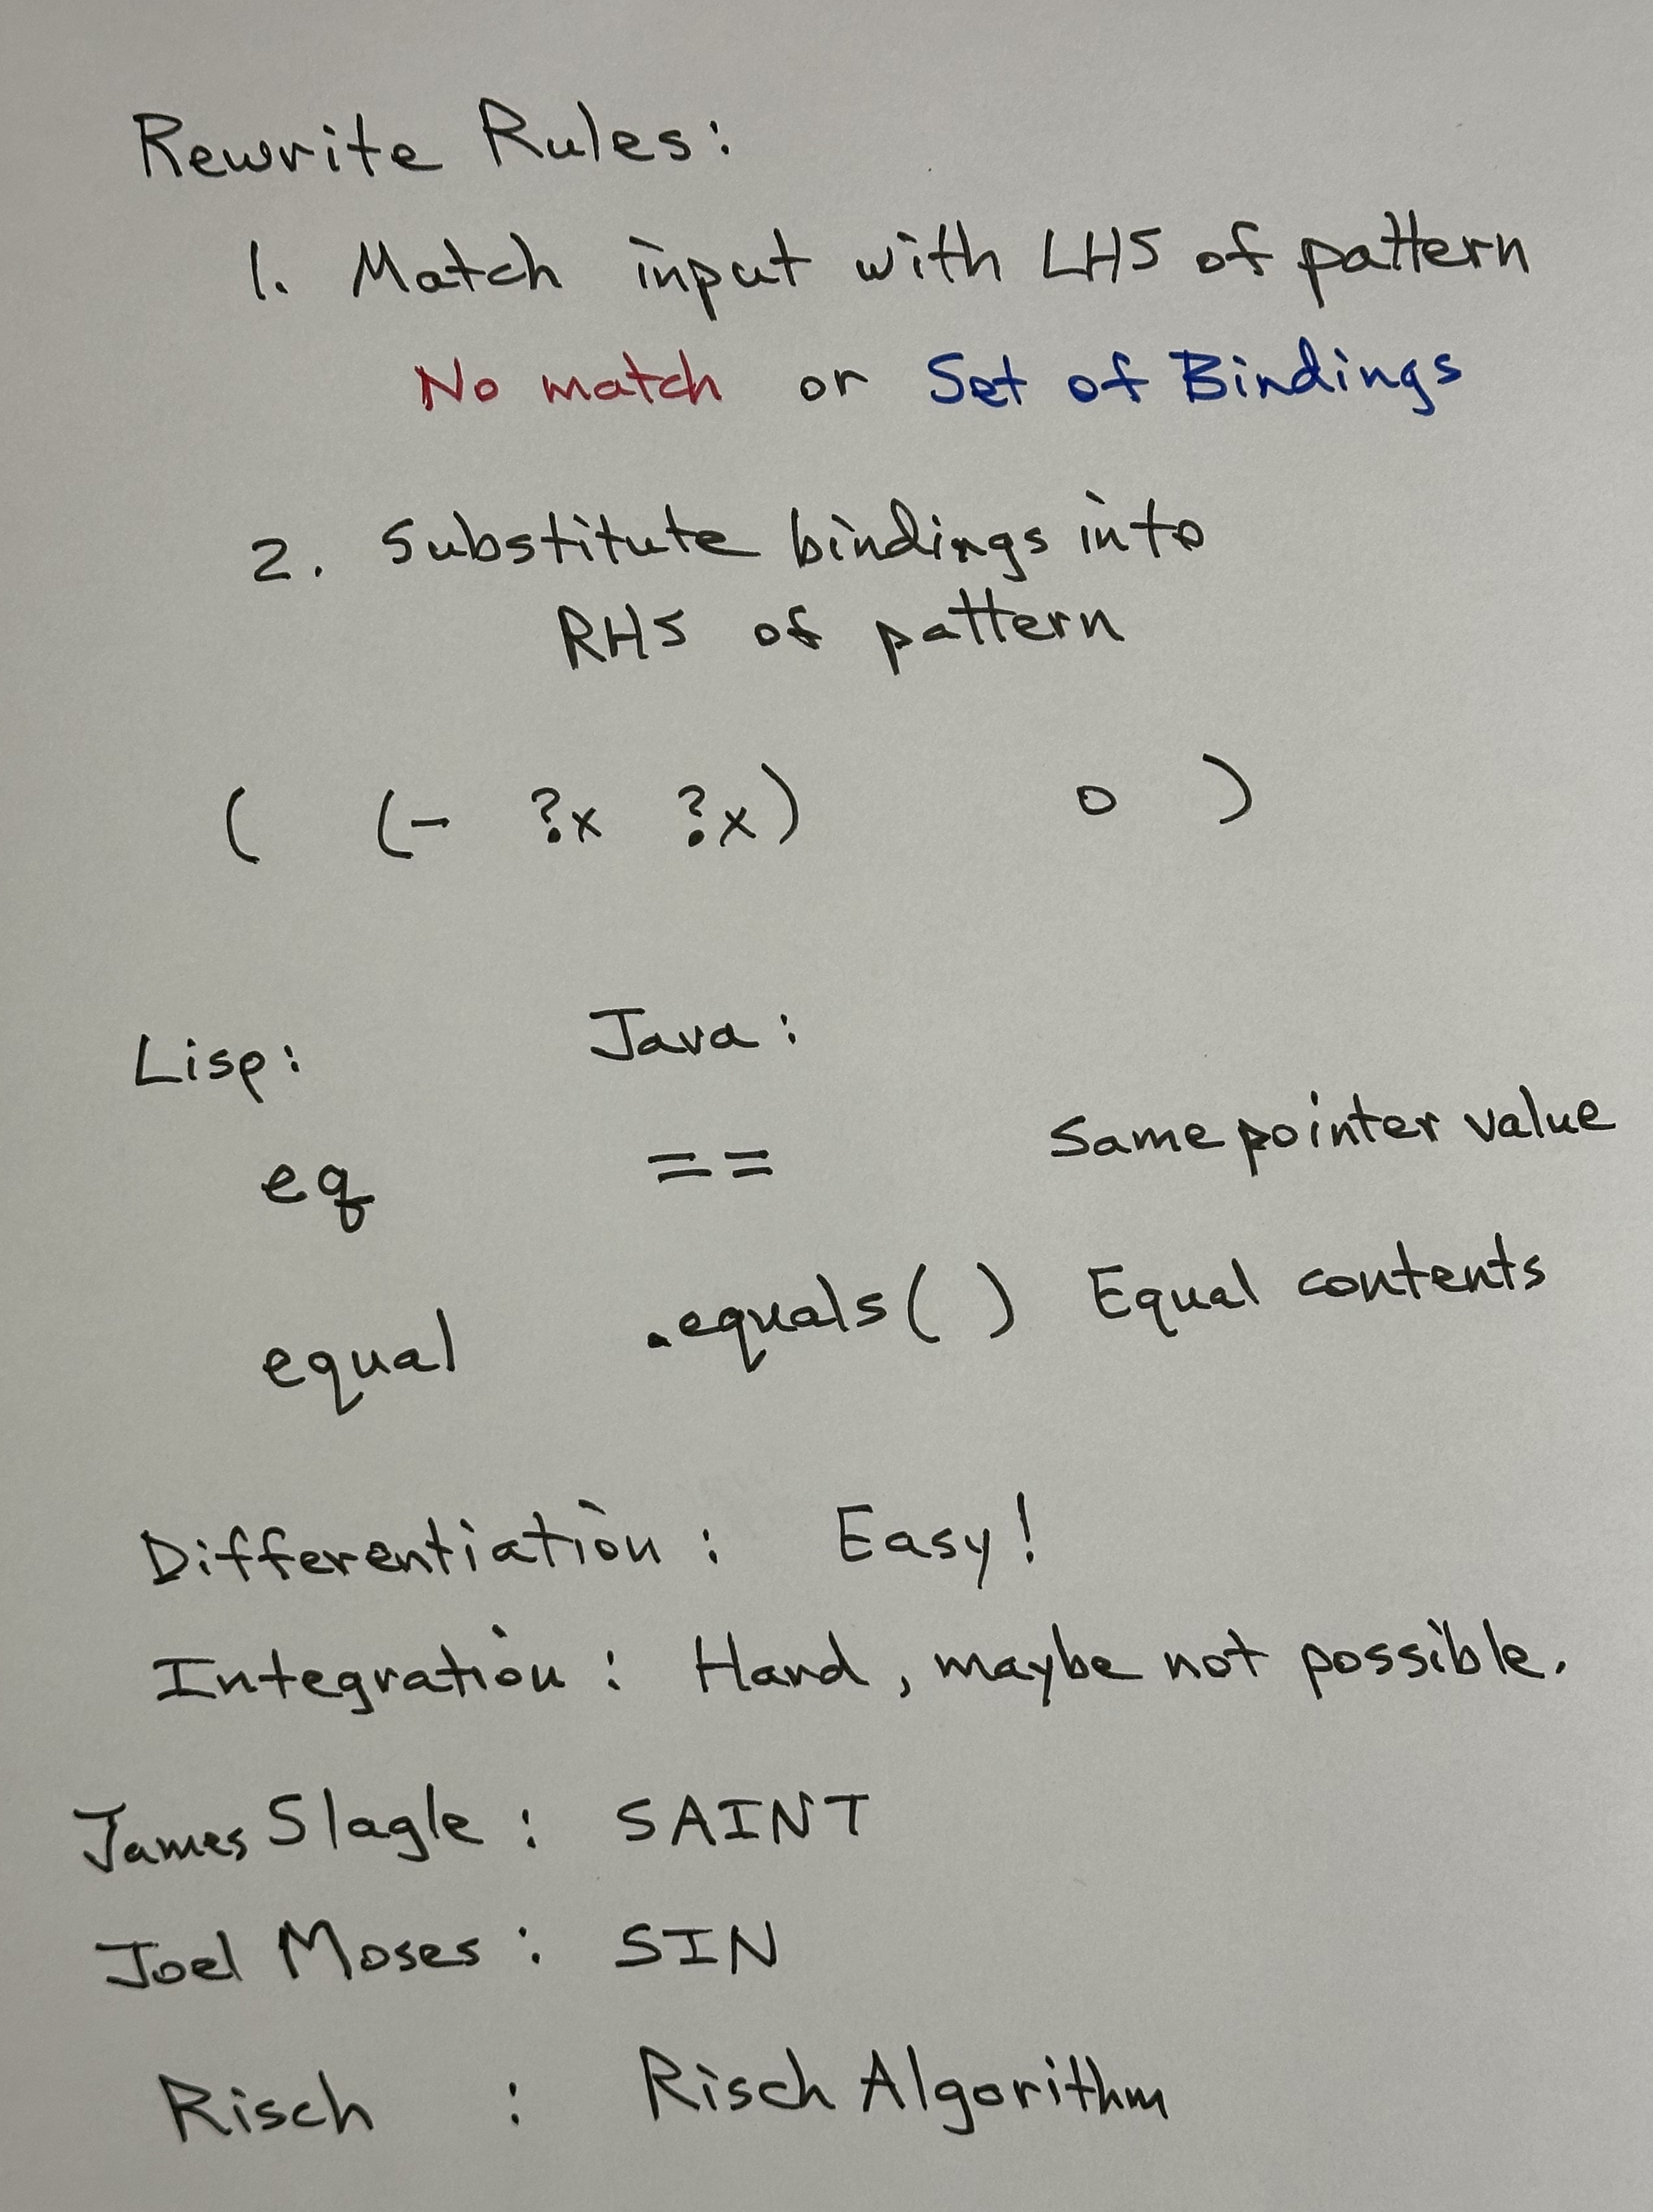 Rewrite Rules:
1. Match input with LHS of pattern
No match or Set of Bindings
2. Substitute bindings into
RHS of pattern
( (- ?x ?x) 0 )
Lisp: Java:
eq == Same pointer value
equal .equals( ) Equal contents
Differentiation: Easy!
Integration: Hard, maybe not possible.
James Slagle: SAINT
Joel Moses: SIN
Risch : Risch Algorithm